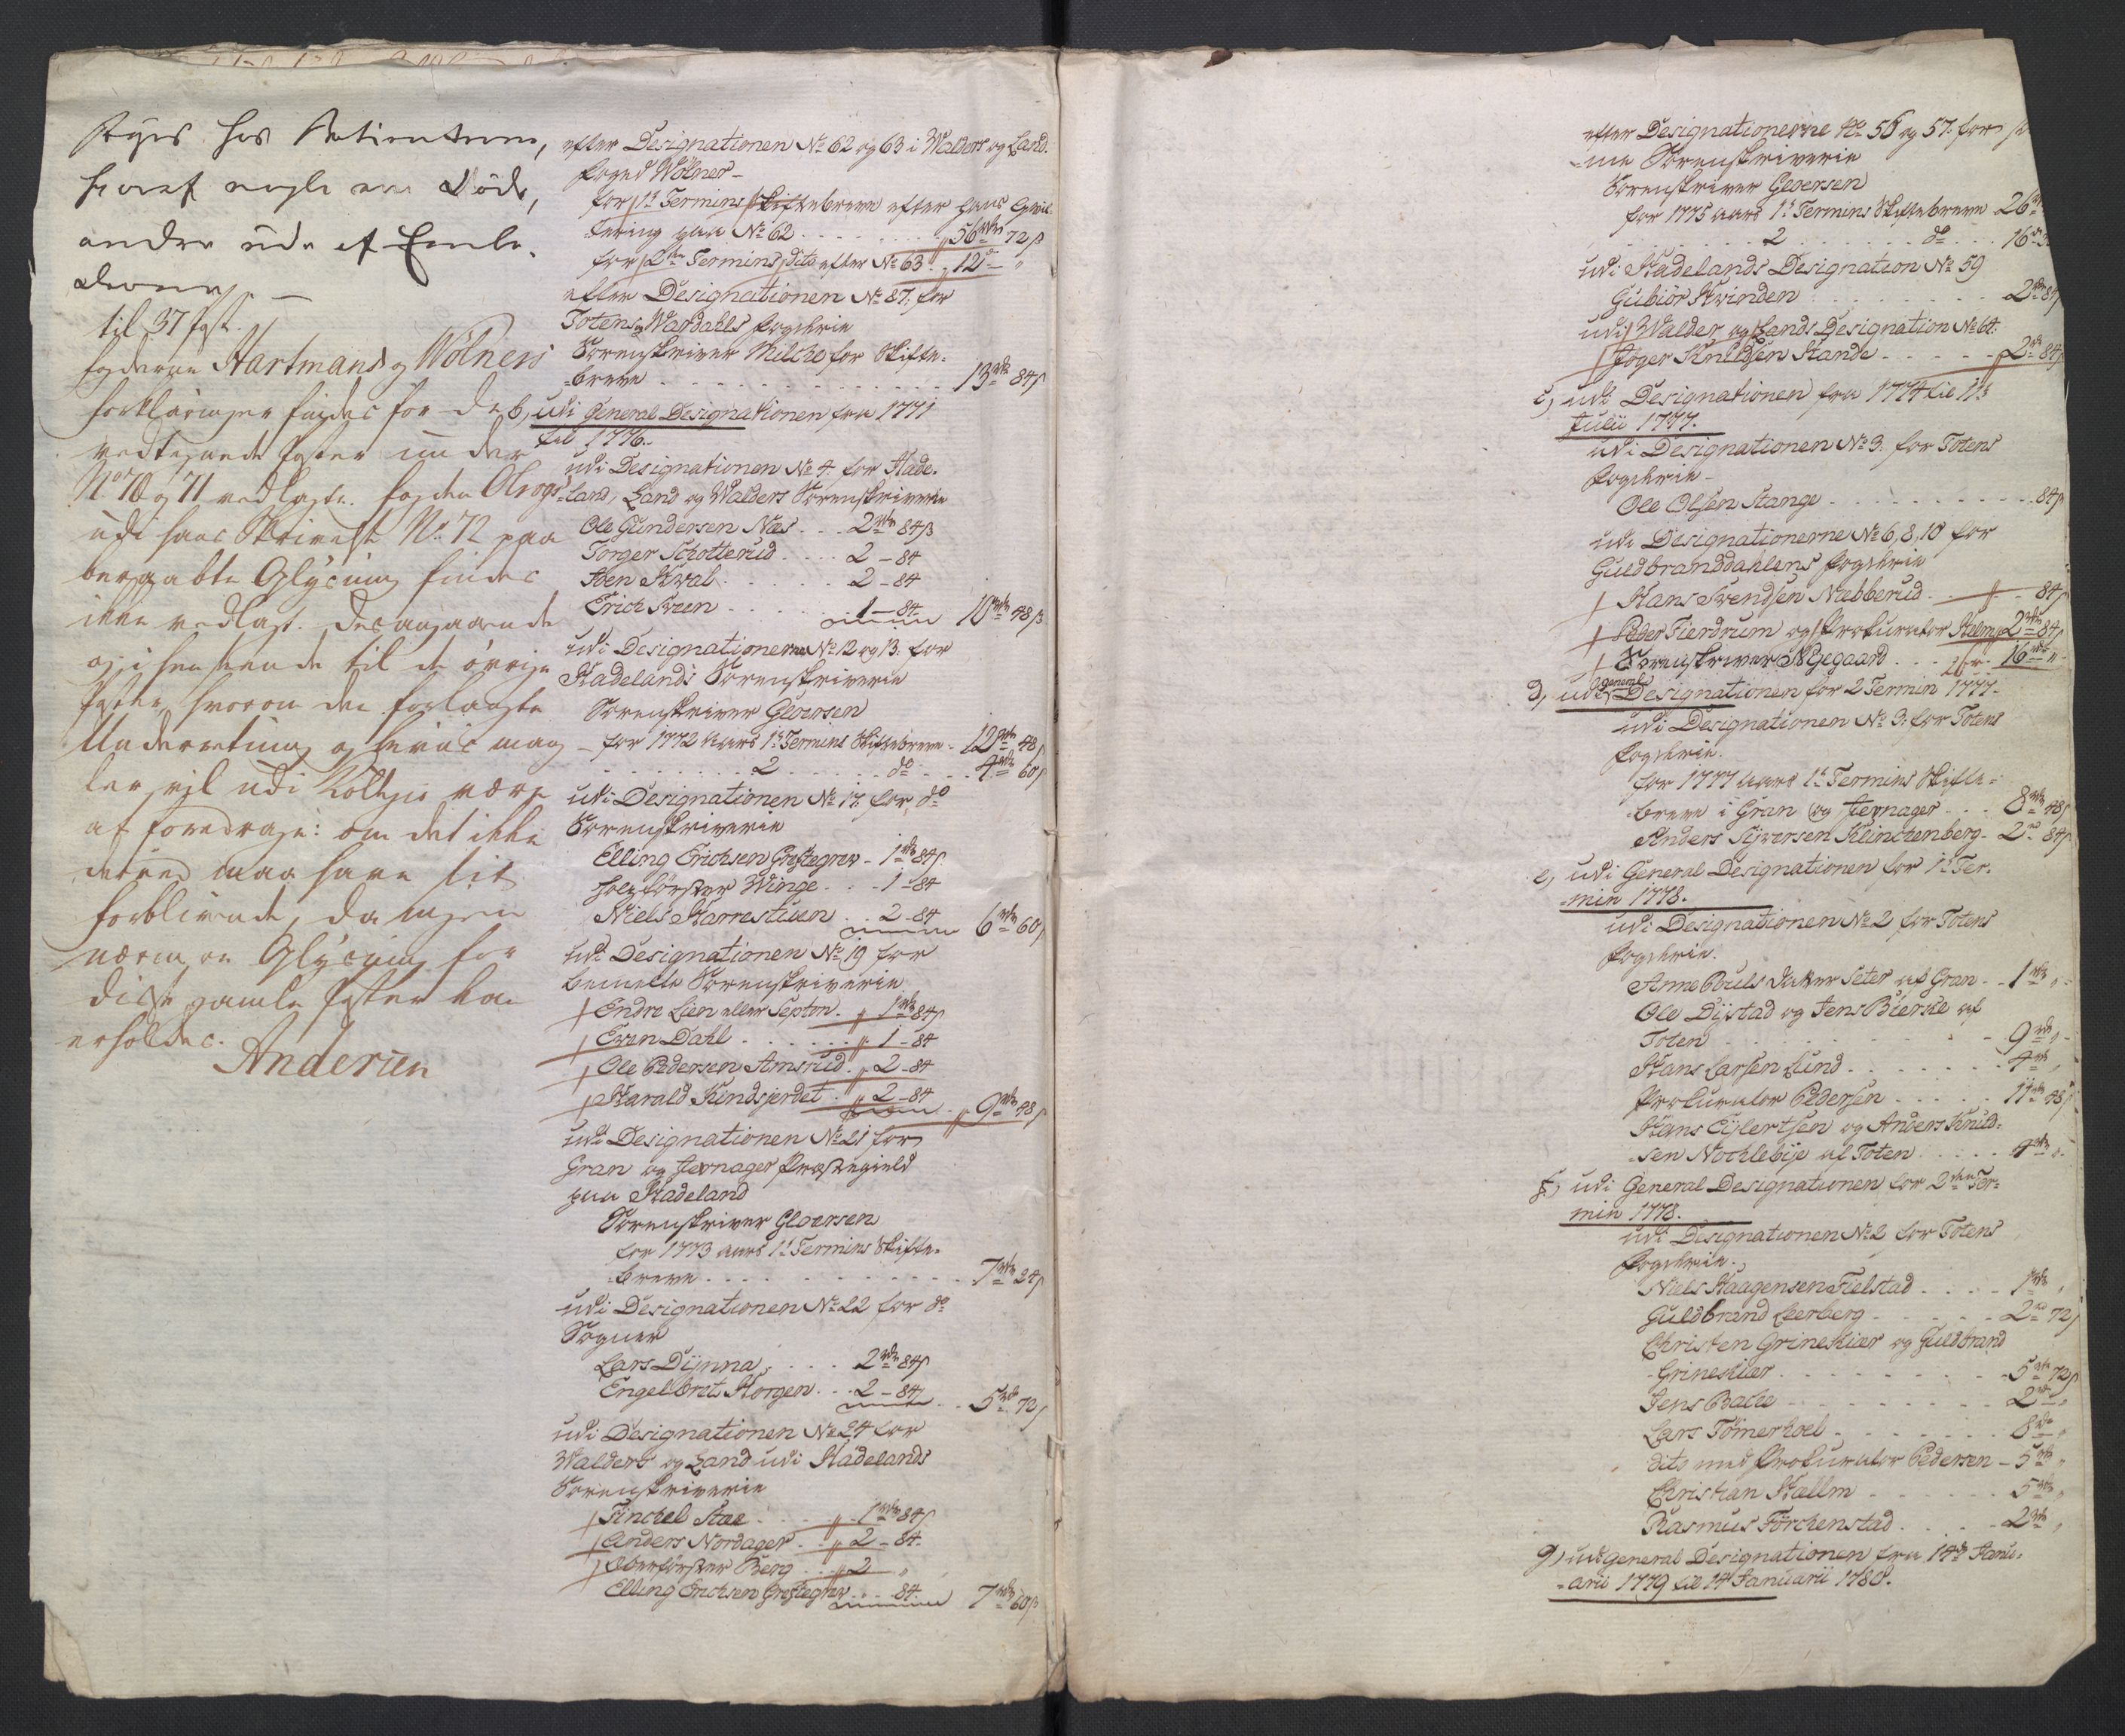 hos
heraf nogle ere Döde,
andre ude af
til 37 Post.
Fogderne Hartmans og Wölners
forklaringer findes for de
vedtegnede Poster under
No 70 og 71 vedlagte. Fogden
udi hans Skrivelse No. 72 paa
beraabte Oplysning findes
ikke vedlagt. Desangaaende
og i henseende til de övrige
Poster, hvorom den forlangte
Underretning og mang-
ler, vil udi være
at foredrage: om det ikke
derved maa have sit
forblivende, da ingen
nærmere Oplysning for
disse gamle Poster kan
erholdes.
Andersen
efter Designationen No 62 og 63 i Walders og Land.
Foged Wölner
for 1te Termins Skiftebreve efter hans Qvit-
tering paa No 62 . . . 56 rdr 72 ß
for 2den Termins dito efter No 63 . . 12 do "
efter Designationen No 87. for
Totens og Wardahls Fogderie
Sorenskriver for Skifte-
breve . . . 13 rdr 84 ß
b, udi General Designationen fra 1771
til 1776.
udi Designationen No 4. for Hade-
land, Land og Walders Sorenskriverie
Ole Gundersen Næs . . 2 rdr 84 ß
Torger Schotterud . . . 2 - 84
Iven Kval . . . 2 - 84
Erich Sveen . . . 1 - 84 10 rdr 48 ß
udi Designationerne No 12 og 13. for
Hadelands Sorenskriverie
Sorenskriver Gloersen
for 1772 Aars 1te Termins Skiftebreve - 12 rdr 48 ß
. . . 2 . . . do . . . 4 rdr 60 ß
udi Designationen No 17. for do
Sorenskriverie
Elling Erichsen Grestegrev - 1 rdr 84 ß
Holzförster Winge . . . 1 - 84
Niels Harrestuen . . 2 - 84 6 rdr 60 ß
udi Designationen No 19 for
bemelte Sorenskriverie
Endre Lien eller Septon . " 1 rdr 84 ß
Even Dahl . . . " 1 - 84
Ole Pedersen Amsrud . " 2 - 84
Harald Kindsjerdet . " 2 - 84 " 9 rdr 48 ß
udi Designationen No 21 for
Gran og Jevnager Præstegield
paa Hadeland
Sorenskriver Gloersen
for 1773 aars 1te Termins Skifte-
breve . . . 7 rdr 24 ß
udi Designationen No 22 for do
Sogner
Lars Dynna . . . 2 rdr 84 ß
Engelbret Horgen . . 2 - 84 5 rdr 72 ß
udi Designationen No 24 for
Walders og Land udi Hadelands
Sorenskriverie
Finchel Hae . . . " 1 rdr 84 ß
Anders Nordager . . " 2 - 84
Oberförster Berg . . " 2 "
Elling Erichsen Grestegrev . . . 84 7 rdr 60 ß
efter Designationerne No 56 og 57. for
-me Sorenskriverie
Sorenskriver Gloersen
for 1775 aars 1te Termins Skiftebreve 26 rdr
. . . 2 . . . do . . . 16 do
udi Hadelands Designation No 59
Gubiör Kvinden . . . 2 rdr 84 ß
udi Walder og Lands Designation No 64.
Joger Knudsen Hande . . . 2 rdr 84 ß
c, udi Designationen fra 1774 til 11te
Julii 1777.
udi Designationen No 3. for Totens
Fogderie -
Ole Olsen Stange . . . 84 ß
udi Designationerne No 6, 8, 10 for
Guldbranddahlens Fogderie
Hans Svendsen Næbberud . . " - 84 ß
Peder Tierdrum og Prokurator 2 rdr 84 ß
Sorenskriver Nÿegaard . . . 16 rdr "
d, udi general Designationen for 2 Termin 1777.
udi Designationen No 3. for Totens
Fogderie.
for 1777 Aars 1te Termins Skifte-
breve i Gran og Jevnager . . 8 rdr 48 ß
Anders Siversen Klinchenberg - 2 rdr 84 ß
e, udi General Designationen for 1te Ter-
min 1778.
udi Designationen No 2 for Totens
Fogderie.
Anne Pouls Datter Seter af Gran . . 1 rdr "
Ole Dÿstad og Jens Bierke af
Toten . . . 9 rdr "
Hans Larsen Lund . . . 4 rdr "
Prokurator Pedersen . . . 11 rdr 48 ß
Hans Eylertsen og Anders Knud-
sen Nochlebÿe af Toten . . . 4 rdr "
f, udi General Designationen for 2den Ter-
min 1778.
udi Designationen No 2 for Totens
Fogderie.
Niels Haagensen Fielstad . . . 1 rdr "
Guldbrand Leerberg . . . 2 rdr 72 ß
Christen Grineskiær og Guldbrand
Grineskiær . . . 5 rdr 72 ß
Jens Balke . . . 2 rdr "
Lars Tömerhoel . . . 8 rdr "
dito med Prokurator Pedersen - 5 rdr "
Christian Hallm . . . 5 rdr "
Rasmus Förchenstad . . . 2 rdr "
g, udi general Designationen fra 14de Janu-
arii 1779 til 14 Januarii 1780.